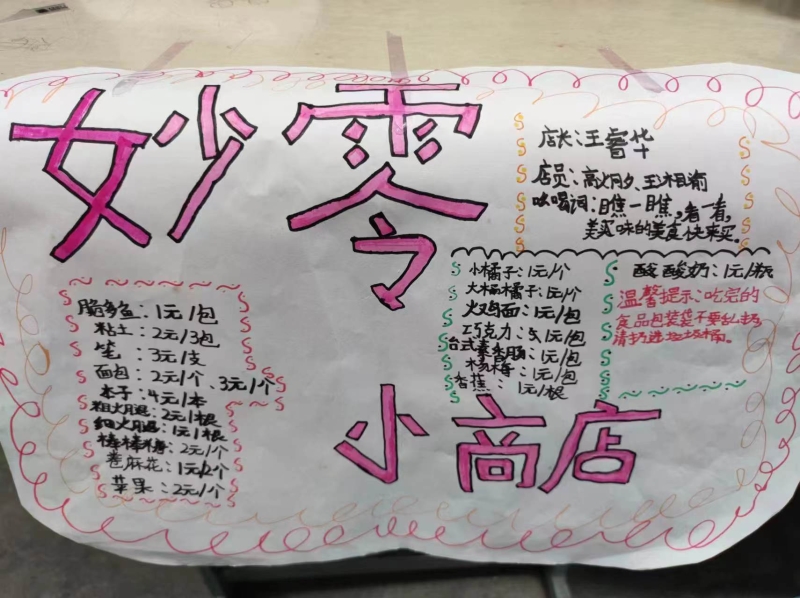 妙零
小商店
店长:王睿华
店员:高灿夕、王相渝
吆喝词:瞧一瞧,看一看,
美味的美食快来买。
脆多鱼:1元/包
粘土:2元/3包
笔:3元/支
面包:2元/个、3元/个
本子:4元/本
粗火腿:2元/根
细火腿:1元/根
棒棒棒:2元/个
卷麻花:1元/2个
苹果:2元/个
小橘子:1元/个
大橘子:1元/个
火鸡面:1元/包
巧克力:1元/包
台式素香肠:1元/包
杨梅:1元/包
香蕉:1元/根
酸酸奶:1元/瓶
温馨提示:吃完的
食品包装袋不要乱扔,
请扔进垃圾桶。